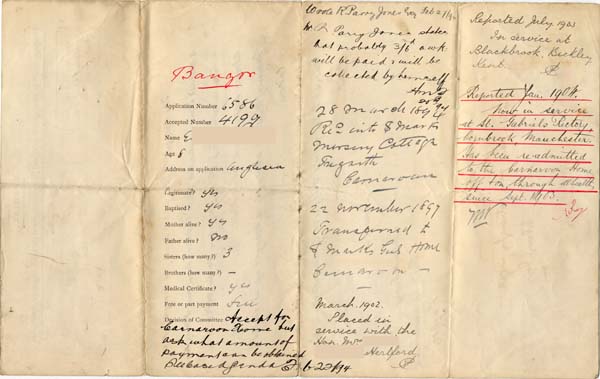 Bangor
Application Number 5586
Accepted Number 4199
Name E
Age 8
Address on application Anglesea
Legitimate? yes
Baptised? yes
Mother alive? yes
Father alive? no
Sisters (how many?) 3
Brothers (how many?) —
Medical Certificate? yes
Free or part payment
Decision of Committee Accept for
Carnarvon Home but
ask what amount of
payment can be obtained
22/94
Wrote R Parry Jones Esq Feb 27/94
Mr R Parry Jones states
that probably 3/6 a wk
will be paid & will be
collected by himself
28 March 1894
Recd into S Mark
Nursing Cottage
Carnarvon
22 November 1897
Transferred to
S Marks Girls Home
Carnarvon —
March. 1902.
Placed in
service with the
Hon. Mrs
Hertford.
Reported July 1903
In service at
Blackbrook, Bickley,
Kent.
Reported Jan. 1904.
Now in service
at St. Gabriels Rectory,
Manchester.
Has been re-admitted
to the Carnarvon Home
off & on through ill health,
since Sept. 1903.